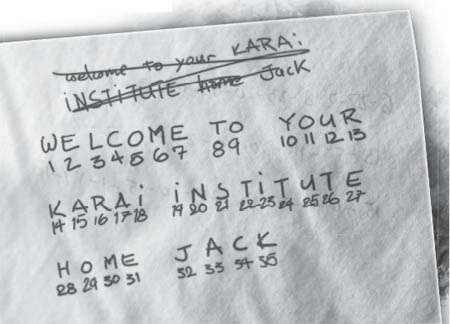 welcome to your KARAi
iNSTiTUTE home Jack
WELCOME TO YOUR
1 2 3 4 5 6 7 8 9 10 11 12 13
KARAi iNSTiTUTE
14 15 16 17 18 19 20 21 22 23 24 25 26 27
HOME JACK
28 29 30 31 32 33 34 35